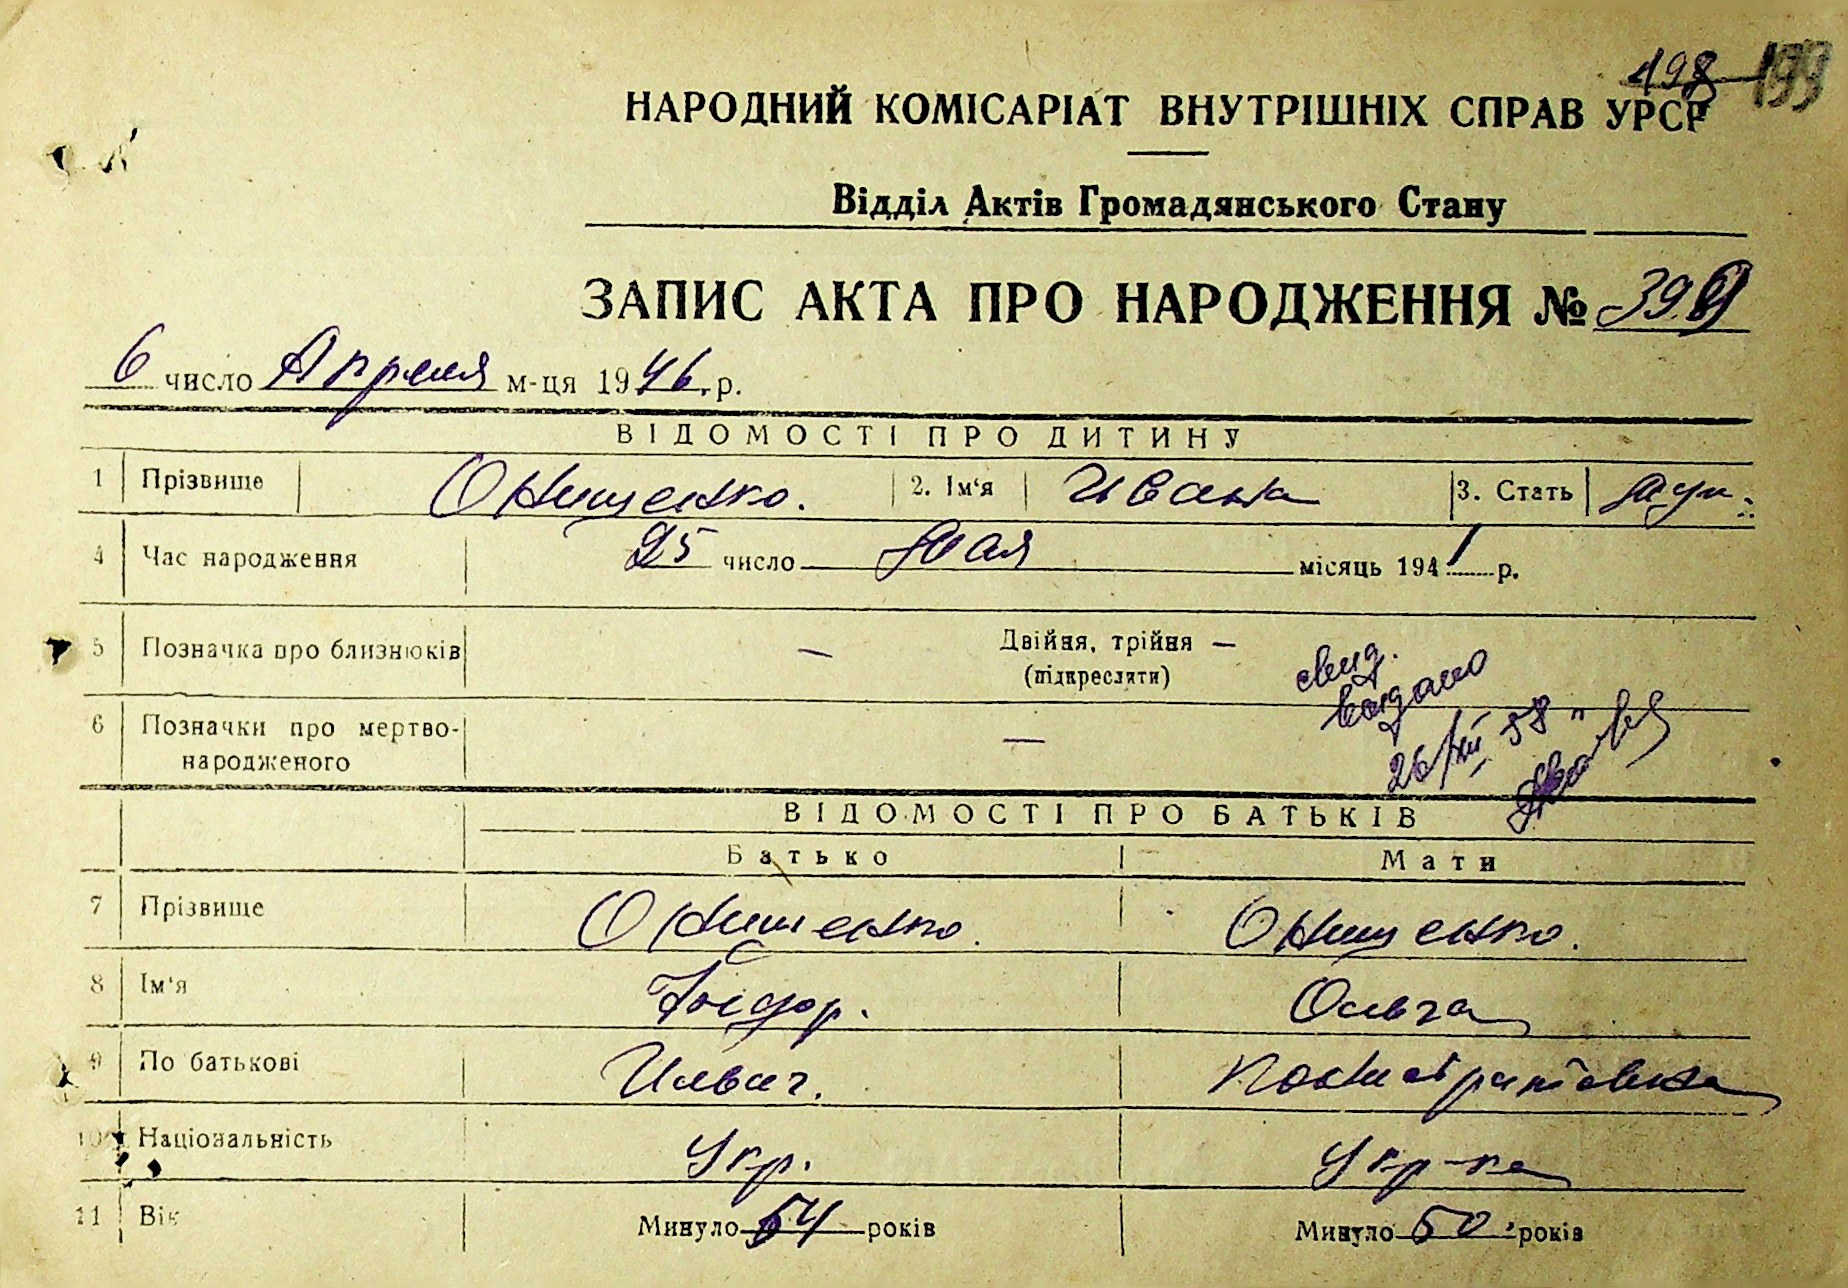 498 199
НАРОДНИЙ КОМІСАРІАТ ВНУТРІШНІХ СПРАВ УРСР
Відділ Актів Громадянського Стану
ЗАПИС АКТА ПРО НАРОДЖЕННЯ №
6 число Апреля м-ця 1946 р.
ВІДОМОСТІ ПРО ДИТИНУ
1 Прізвище Онищенко. 2. Ім'я Иван 3. Стать муж.
4 Час народження 25 число Мая місяць 1941 р.
5 Позначка про близнюків — Двійня, трійня —
(підкреслити)
6 Позначки про мертво-
народженого —
свид.
выдано
26/XII 58"
ВІДОМОСТІ ПРО БАТЬКІВ
Батько Мати
7 Прізвище Онищенко. Онищенко.
8 Ім'я Ольга
9 По батькові Ильич.
10 Національність Укр. Укр-ка
11 Вік Минуло 54 років Минуло 50 років